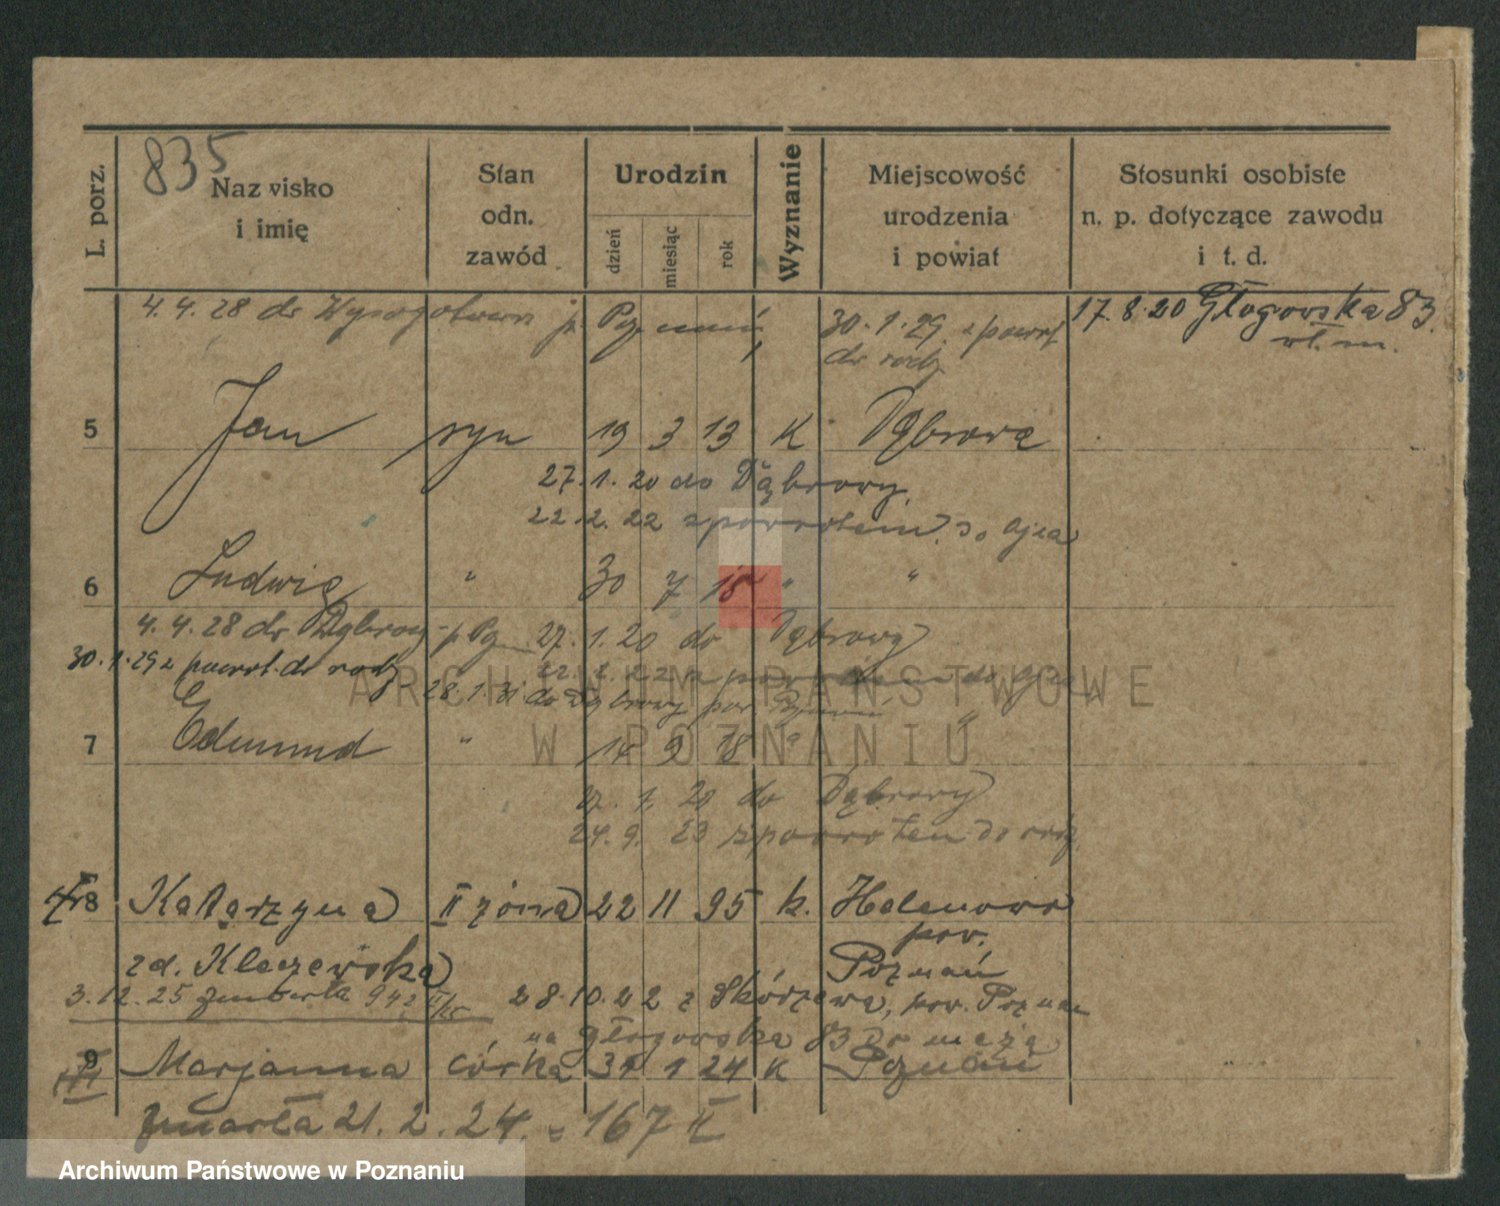 835
L. porz.
Nazwisko
i imię
Stan
odn.
zawód
Urodzin
dzień
miesiąc
rok
Wyznanie
Miejscowość
urodzenia
i powiat
Stosunki osobiste
n. p. dotyczące zawodu
i t. d.
4.4.28 do p. Poznań, 30.1.29. z powrt 17.8.20 Głogowska 83.
do rodz wł. m.
5 Jan syn 19 3 13 K Dąbrowa
27.1.20 do Dąbrowy.
22.2.22 z powrotem do ojca
6 Ludwig " 30 7 15 " "
4.4.28 do Dąbrowy p 27.1.20 do Dąbrowy
30.1.29 z powrot. do rodz 22.2.22 z powrotem do ojca
28.1.31 do Dąbrowy pow Poznań
7 Edmund " 14 9 18 " "
27.1.20 do Dąbrowy
24.9.23 z powrotem do rodz.
8 Katarzyna II żona 22 11 95 k. Helenowo
pow.
zd. Kleczewska Poznań
3.12.25 zmarła 942 28.10.22 z Skórzewa, pow. Poznań
na Głogowska 83 do męża
9 Marjanna córka 31 1 24 K Poznań
zmarła 21.2.24. = 167 II
ARCHIWUM PAŃSTWOWE
W POZNANIU
Archiwum Państwowe w Poznaniu